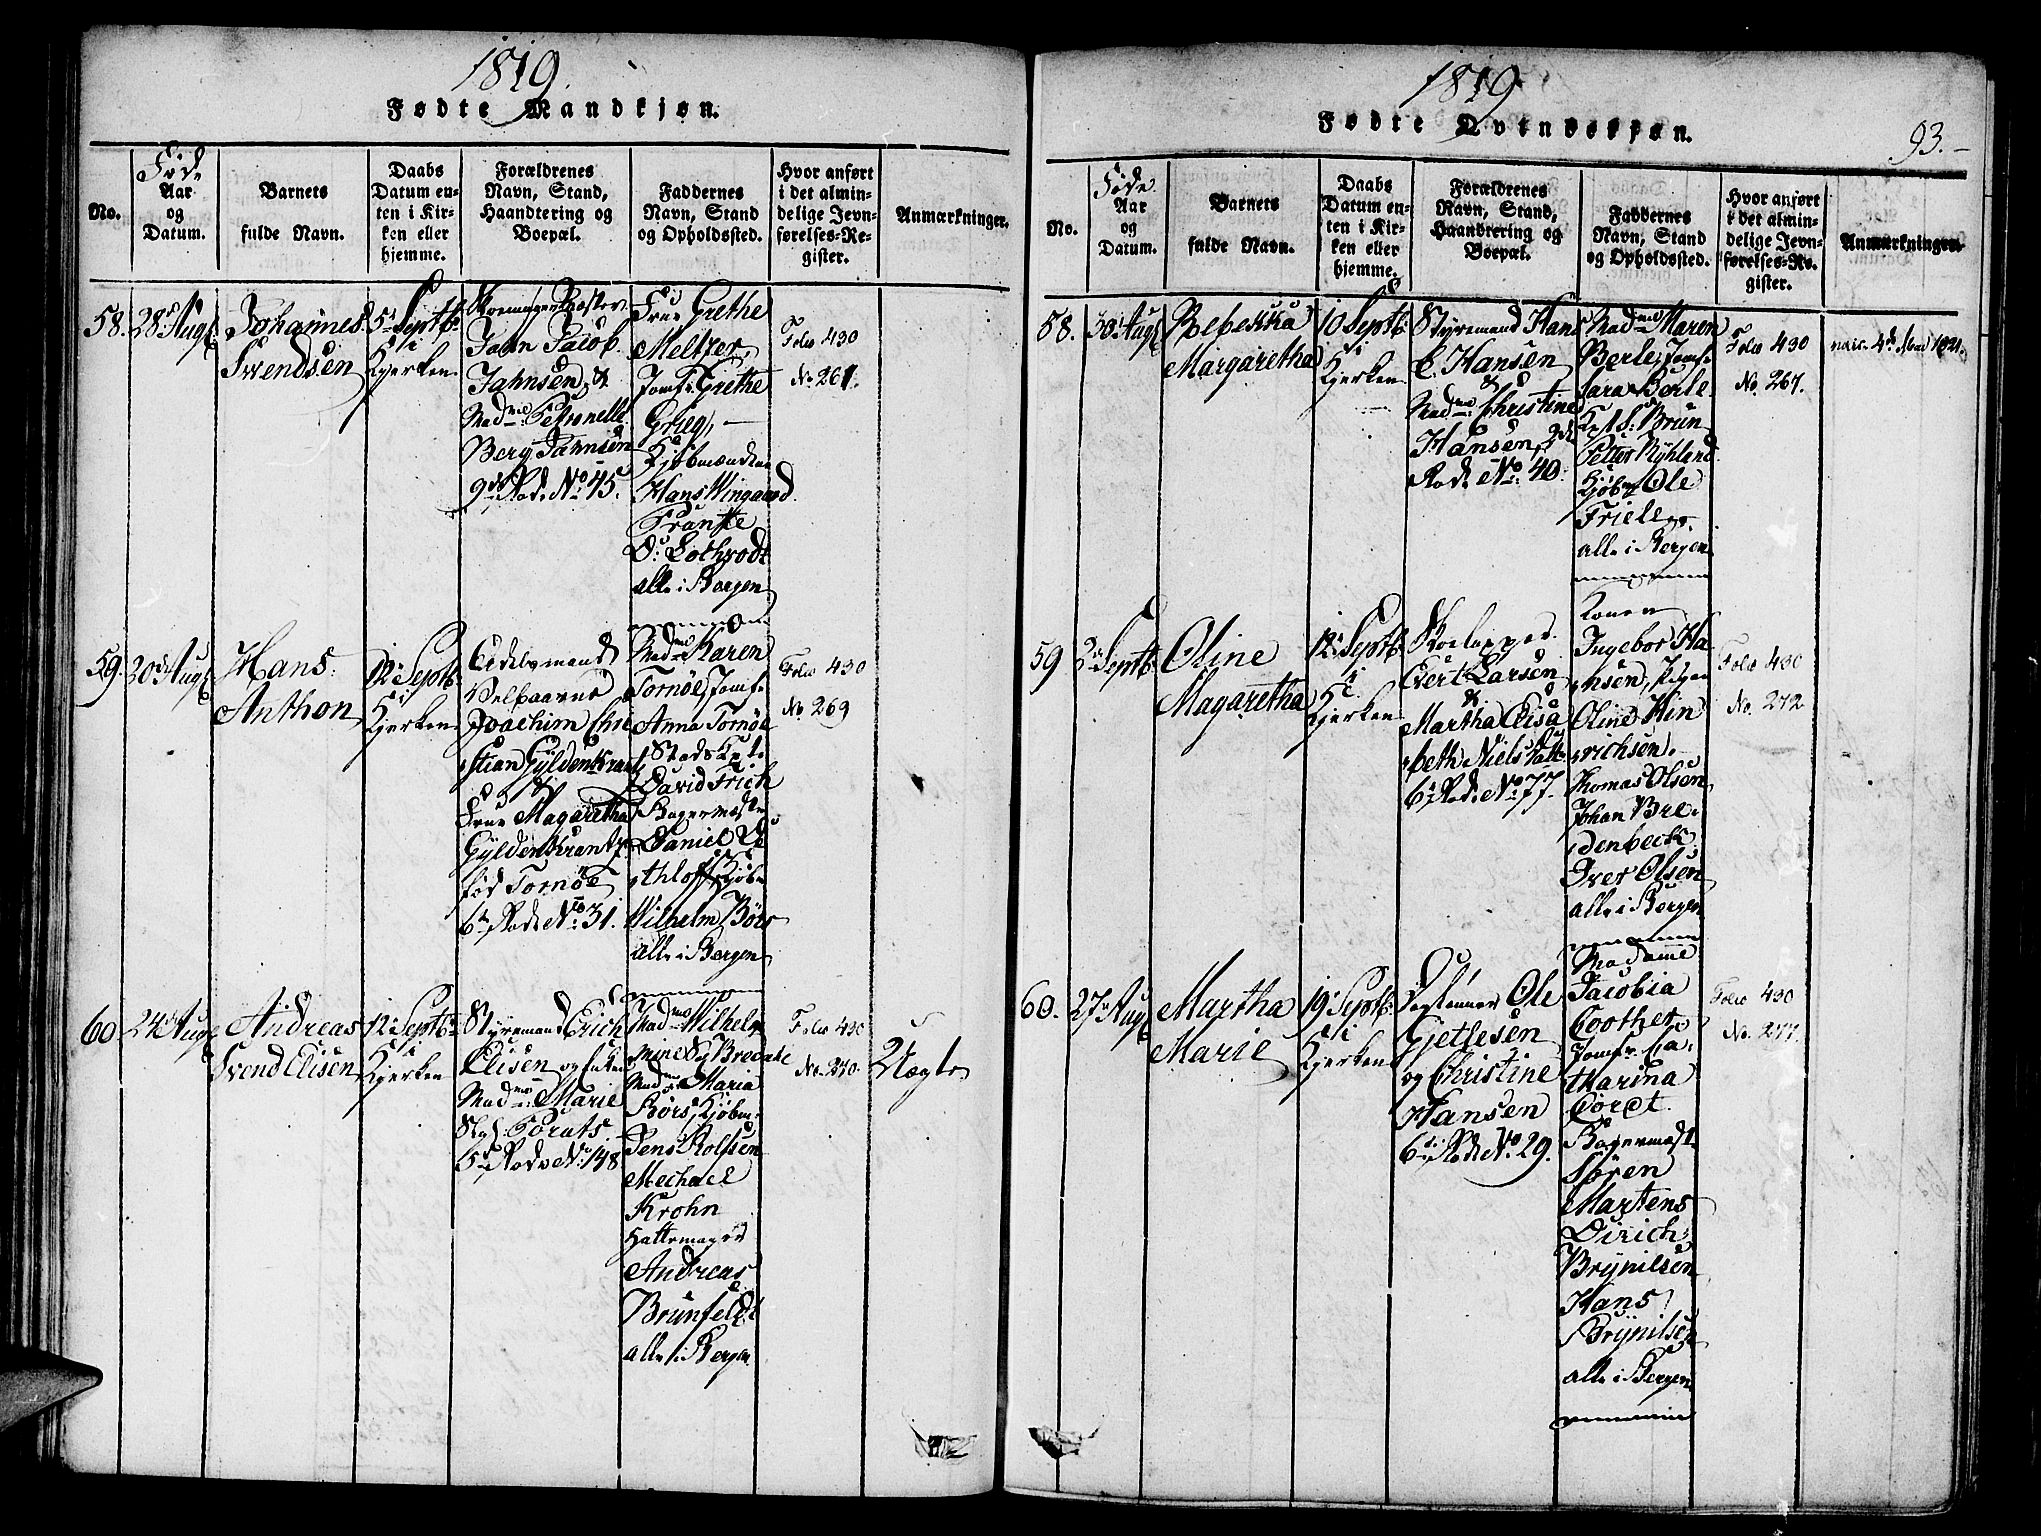 1819.
Fødte Mandkjøn.
No.
Føde
Aar
og
Datum.
Barnets
fulde Navn.
Daabs
Datum en-
ten i Kir-
ken eller
hjemme.
Forældrenes
Navn, Stand,
Haandtering og
Boepæl.
Faddernes
Navn, Stand
og Opholdssted.
Hvor anført
i det almin-
delige Jevn-
førelses-Re-
gister.
Anmærkninger.
58.
28de Aug
Johannes
Svendsen
5t Septb:
i
Kjerken
Jahn Jacob
Jahnsen &
Madme Petronelle
Berg Jahnsen
9de Rode No 45.
Frue Grethe
Meltzer,
Jomf: Grethe
Grieg,
Kjøbmændene
Hans Wingaard
Frantte
D: Lothrodt
alle i Bergen
Folio 430
No. 261.
59.
30 Aug
Hans
Anthon
12te Septb
i
Kjerken
Edelsmand
Velbaarne
Joachim Chri
stian Gyldenkrantz
&
Frue Magaretha
Gyldenkrantz
fød Tornöe
6te Rode No: 31.
Madme Karen
Tornöe, Jomf:
Anna Tornöe
Stads Kpt:
David Frich
Bagermester
Daniel
Kjøbm
Wilhelm Börs
alle i Bergen
Folio 430
No. 269
60
24 Aug
Andreas
Svend Elisen
12te Septb:
i
Kjerken
Styrmand Erich
Elisen og
Madme: Marie
5te Rode No: 148
Madme Wilhel
mine
Madme Maria
Börs, Kjöbm:
Jens Rolfsen
Mechael
Krohn
Hattemager
Andreas
Brunfeldt
alle i Bergen
Folio 430
No. 270.
Uægte
1819
Fødte Qvindekjøn.
93.
No.
Føde
Aar
og
Datum.
Barnets
fulde Navn.
Daabs
Datum en-
ten i Kir-
ken eller
hjemme.
Forældrenes
Navn, Stand,
Haandtering og
Boepæl.
Faddernes
Navn, Stand
og Opholdssted.
Hvor anført
i det almin-
delige Jevn-
førelses-Re-
gister.
Anmærkninger.
58.
30 Aug
Rebekka
Margaretha
10 Septb:
i
Kjerken
Styremand Hans
C. Hansen
&
Madme Christine
Hansen, 2de
Rode No: 40.
Madme Maren
Berle, Jomf:
Sara Berle
Kpt. S: Brun
Petter Ryhland
Kjøbm Ole
Friele
alle i Bergen
Folio 430
No. 267.
vacc. 4de Mai 1821.
59
3 Septb:
Oline
Magaretha
12te Septb
i
Kjerken
Evert Larsen
&
Martha Elisa
beth Niels Datt:
6te Rode No: 77.
Konen
Ingebor Ha
nsen, Pigen
Oline Hin
richsen.
Thomas Olsen
Johan Bre
denbeck
Iver Olsen
alle i Bergen
Folio 430
No. 272
60.
27de Aug
Martha
Marie
19de Septb:
i
Kjerken
Dagleiner Ole
Gjetlesen
og Christine
Hansen
6te Rode No: 29.
Madame
Jacobia
Coother
Jomfr: Ca
tharina
Coret.
Bagermest
Sören
Martens
Dirich
Brynilsen
Hans
Brynilsen
alle i Bergen
Folio 430
No. 277.